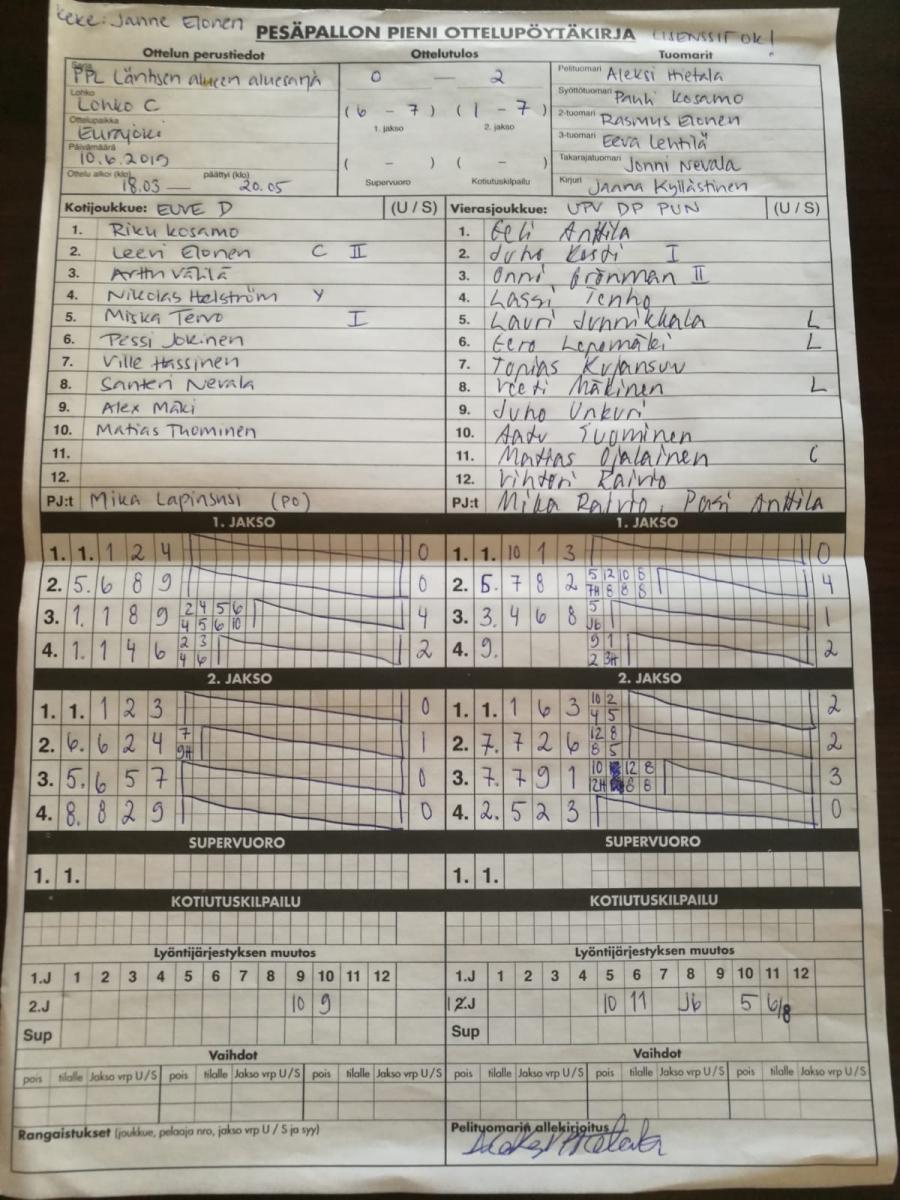 Keke: Janne Elonen
PESÄPALLON PIENI OTTELUPÖYTÄKIRJA LISENSSIT OK!
Ottelun perustiedot
Sarja PPL Läntisen alueen aluesarja
Lohko Lohko C
Ottelupaikka Eurajoki
Päivämäärä 10.6.2019
Ottelu alkoi (klo) 18.03 — päättyi (klo) 20.05
Ottelutulos
0 — 2
(6 - 7) (1 - 7)
1. jakso 2. jakso
( - ) ( - )
Supervuoro Kotiutuskilpailu
Tuomarit
Pelituomari Aleksi Hietala
Syöttötuomari Pauli Kosamo
2-tuomari Rasmus Elonen
3-tuomari Eeva Lehtilä
Takarajatuomari Jonni Nevala
Kirjuri Jaana Kyllästinen
Kotijoukkue: EUVE D (U / S)
1. Riku Kosamo
2. Leevi Elonen C II
3. Arttu Välilä
4. Nikolas Helström Y
5. Miska Tervo I
6. Pessi Jokinen
7. Ville Hassinen
8. Santeri Nevala
9. Alex Mäki
10. Matias Thominen
11.
12.
PJ:t Mika Lapinsusi (PO)
Vierasjoukkue: UPV DP PUN (U / S)
1. Eeli Anttila
2. Juho Koski I
3. Onni Grönman II
4. Lassi Tenho
5. Lauri Junnikkala L
6. Eero Lepomäki L
7. Topias Kujansuu
8. Veeti Mäkinen L
9. Juho Unkuri
10. Aatu Tuominen
11. Matias Ojalainen C
12. Vihtori Raivio
PJ:t Mika Raivio, Pasi Anttila
1. JAKSO
1. 1. 1 2 4 0
2. 5. 6 8 9 0
3. 1. 1 8 9 2 4 5 6 4
4 5 6 10
4. 1. 1 4 6 2 3 2
4 6
1. JAKSO
1. 1. 10 1 3 0
2. 5. 7 8 2 5 12 10 8 4
7H 8 8 8
3. 3. 4 6 8 5 1
J6
4. 9. 9 1 2
2 3H
2. JAKSO
1. 1. 1 2 3 0
2. 6. 6 2 4 7 1
9H
3. 5. 6 5 7 0
4. 8. 8 2 9 0
2. JAKSO
1. 1. 1 6 3 10 2 2
4 5
2. 7. 7 2 6 12 8 2
8 5
3. 7. 7 9 1 10 12 8 3
12H 8 8
4. 2. 5 2 3 0
SUPERVUORO
1. 1.
SUPERVUORO
1. 1.
KOTIUTUSKILPAILU
KOTIUTUSKILPAILU
Lyöntijärjestyksen muutos
1.J 1 2 3 4 5 6 7 8 9 10 11 12
2.J 10 9
Sup
Lyöntijärjestyksen muutos
1.J 1 2 3 4 5 6 7 8 9 10 11 12
2.J 10 11 J6 5 6/8
Sup
Vaihdot
pois tilalle Jakso vrp U/S pois tilalle Jakso vrp U/S pois tilalle Jakso vrp U/S
Vaihdot
pois tilalle Jakso vrp U/S pois tilalle Jakso vrp U/S pois tilalle Jakso vrp U/S
Rangaistukset (joukkue, pelaaja nro, jakso vrp U / S ja syy)
Pelituomarin allekirjoitus